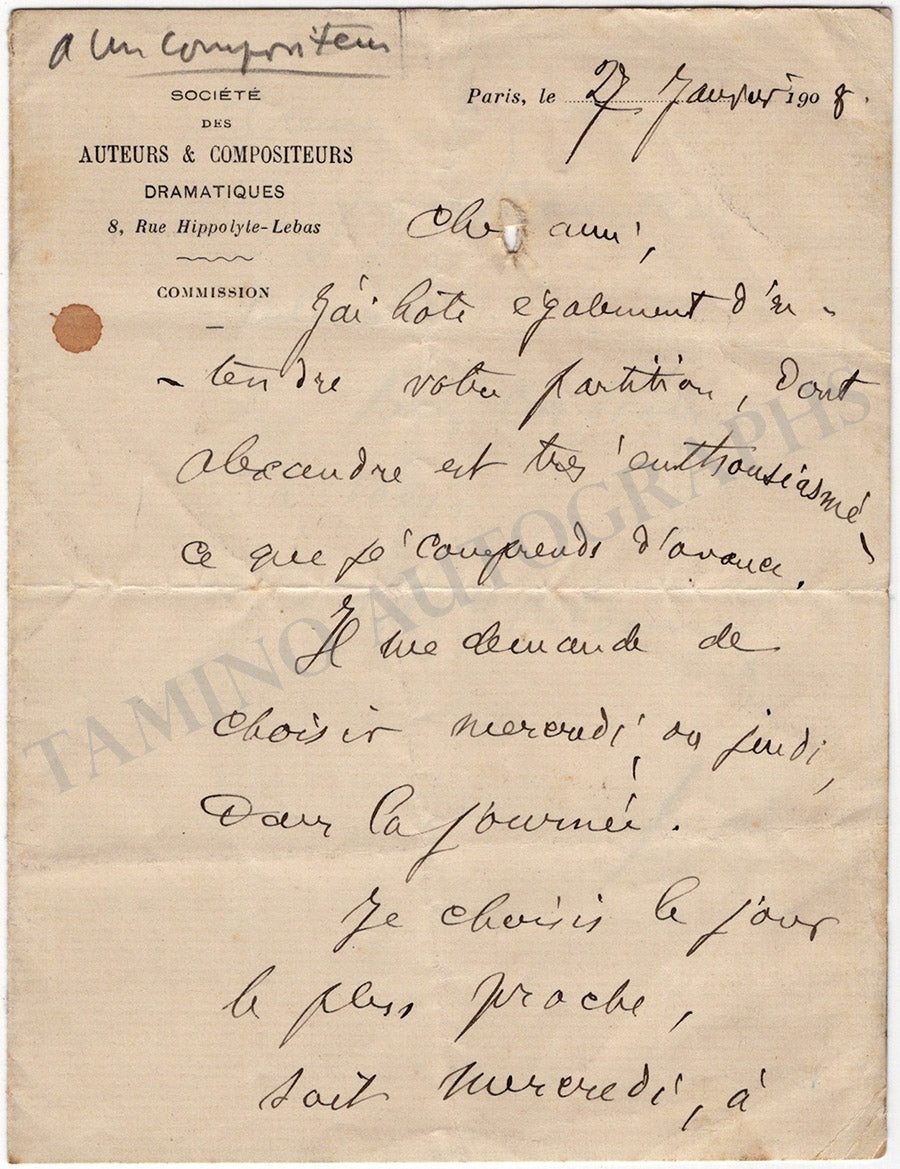 A un compositeur
SOCIÉTÉ
DES
AUTEURS & COMPOSITEURS
DRAMATIQUES
8, Rue Hippolyte-Lebas
COMMISSION
Paris, le 27 Janvier 1908.
Che ami,
J'ai hâte également d'en-
-tendre votre partition, dont
Alexandre est très enthousiasmé,
ce que je comprends d'avance.
Il me demande de
choisir mercredi, ou jeudi,
Dans la journée.
Je choisis le jour
le plus proche,
soit mercredi, à
TAMINO AUTOGRAPHS